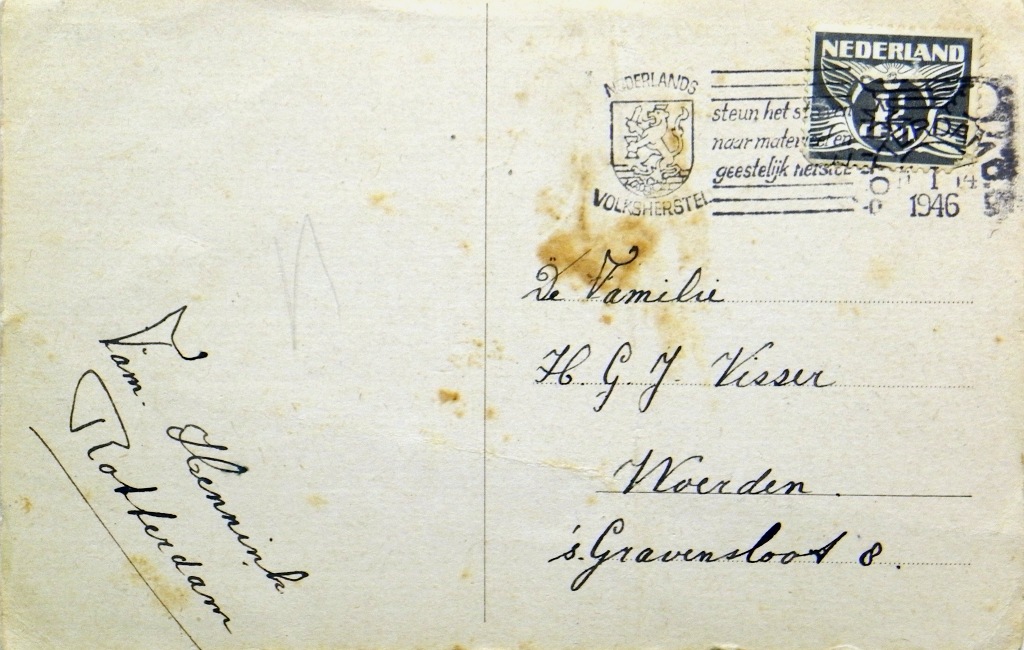 NEDERLAND
NEDERLANDS
VOLKSHERSTEL
steun het
naar materieel en
geestelijk herstel
1946
De Familie
H. G. J. Visser
Woerden.
's Gravensloot 8.
Fam. Hennink
Rotterdam